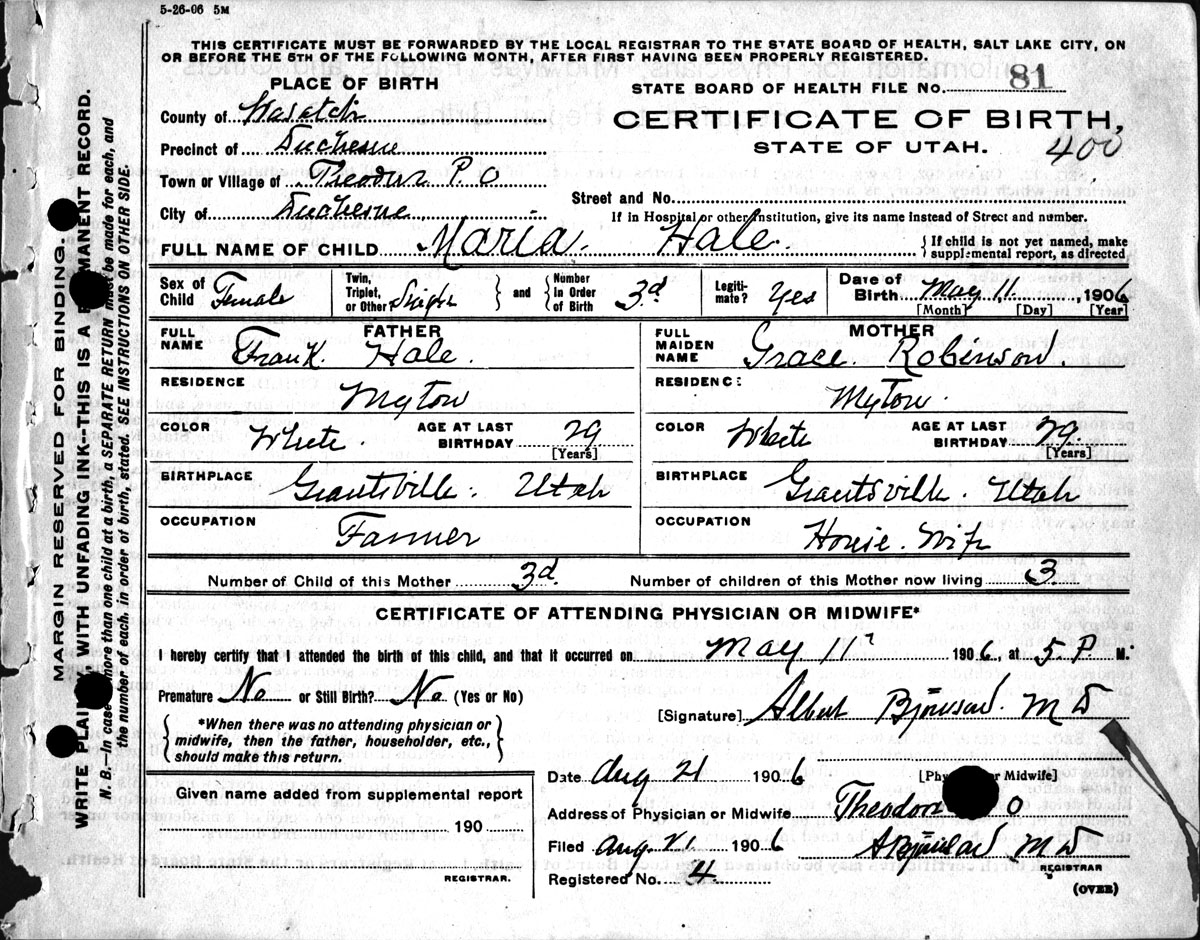 5-26-06 5M
THIS CERTIFICATE MUST BE FORWARDED BY THE LOCAL REGISTRAR TO THE STATE BOARD OF HEALTH, SALT LAKE CITY, ON
OR BEFORE THE 5TH OF THE FOLLOWING MONTH, AFTER FIRST HAVING BEEN PROPERLY REGISTERED.
PLACE OF BIRTH
STATE BOARD OF HEALTH FILE No. 81
County of Wasatch
CERTIFICATE OF BIRTH,
Precinct of Duchesne
STATE OF UTAH. 400
Town or Village of Theodore P. O
Street and No.
City of Duchesne
If in Hospital or other Institution, give its name instead of Street and number.
FULL NAME OF CHILD Maria Hale
{If child is not yet named, make
supplemental report, as directed
Sex of Child Female
Twin, Triplet, or Other? Single } and { Number in Order of Birth 3d
Legitimate? Yes
Date of Birth May 11, 1906
[Month] [Day] [Year]
FATHER
FULL NAME Frank Hale.
RESIDENCE Myton
COLOR White. AGE AT LAST BIRTHDAY 29
[Years]
BIRTHPLACE Grantsville. Utah
OCCUPATION Farmer
MOTHER
FULL MAIDEN NAME Grace Robinson.
RESIDENCE Myton.
COLOR White AGE AT LAST BIRTHDAY 29.
[Years]
BIRTHPLACE Grantsville. Utah
OCCUPATION House. Wife
Number of Child of this Mother 3d. Number of children of this Mother now living 3.
CERTIFICATE OF ATTENDING PHYSICIAN OR MIDWIFE*
I hereby certify that I attended the birth of this child, and that it occurred on May 11 1906, at 5. P. M.
Premature? No or Still Birth? No (Yes or No)
[Signature] Albert Bjornson. M D
{*When there was no attending physician or
midwife, then the father, householder, etc.,
should make this return.}
Date Aug 21 1906
[Phy or Midwife]
Given name added from supplemental report
190
REGISTRAR.
Address of Physician or Midwife Theodore O
Filed Aug. 21. 1906 A Bjornson M D
REGISTRAR
Registered No. 4
(OVER)
MARGIN RESERVED FOR BINDING.
WRITE PLAINLY WITH UNFADING INK--THIS IS A PERMANENT RECORD.
N. B.—In case more than one child at a birth, a SEPARATE RETURN must be made for each, and
the number of each, in order of birth, stated. SEE INSTRUCTIONS ON OTHER SIDE.